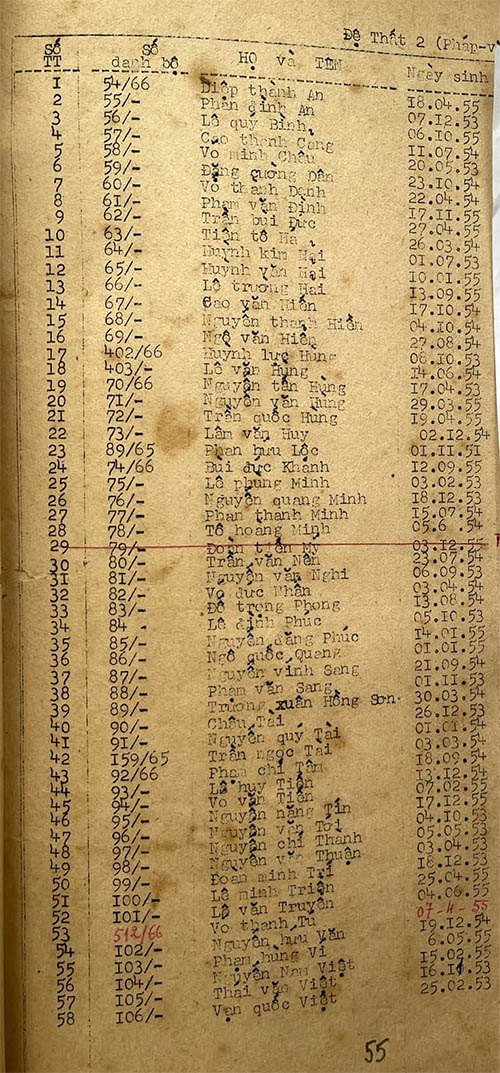 Đệ Thất 2 (Pháp-v
Số TT Số danh bộ HỌ và TÊN Ngày sinh
I 54/66 Diệp thành An I8.04.55
2 55/- Phan đình An 07.I2.53
3 56/- Lê quý Bình 06.I0.55
4 57/- Cao thanh Cang II.07.54
5 58/- Vo minh Châu 20.05.53
6 59/- Đặng quang Dân 23.I0.54
7 60/- Võ thanh Danh 22.04.54
8 6I/- Phạm văn Định I7.II.55
9 62/- Trần bùi Đức 27.04.55
I0 63/- Tiện tố Ha 26.03.54
II 64/- Huỳnh kim Hai 0I.07.53
I2 65/- Huynh văn Hai I0.0I.55
I3 66/- Lê trương Hai I3.09.55
I4 67/- Cao văn Hiền I7.I0.54
I5 68/- Nguyễn thanh Hiền 04.I0.54
I6 69/- Ngô văn Hiền 27.08.54
I7 402/66 Huynh lực Hùng 08.I0.53
I8 403/- Lê văn Hùng I4.06.54
I9 70/66 Nguyễn tấn Hùng I7.04.53
20 7I/- Nguyễn văn Hung 29.03.55
2I 72/- Trần quốc Hung I9.04.55
22 73/- Lâm văn Huy 02.I2.54
23 89/65 Phan hưu Lộc 0I.II.5I
24 74/66 Bùi đức Khánh I2.09.55
25 75/- Lê phung Minh 03.02.53
26 76/- Nguyễn quang Minh I8.I2.53
27 77/- Phan thanh Minh I5.07.54
28 78/- Tô hoàng Minh 05.6 .54
29 79/- Đoàn tiến Mỹ 03.I2.55
30 80/- Trần văn Nên 23.07.54
3I 8I/- Nguyễn văn Nghi 06.09.53
32 82/- Vo đưc Nhân 03.04.54
33 83/- Đỗ trọng Phong I3.08.54
34 84 Lê đình Phúc 05.I0.53
35 85/- Nguyễn đăng Phúc I4.0I.55
36 86/- Ngô quốc Quang 0I.0I.55
37 87/- Nguyễn vinh Sang 2I.09.54
38 88/- Phạm văn Sang 0I.II.53
39 89/- Trương xuân Hồng Sơn 30.03.54
40 90/- Châu Tài 26.I2.53
4I 9I/- Nguyễn quý Tài 0I.0I.54
42 I59/65 Trần ngọc Tai 03.03.54
43 92/66 Phạm chí Tâm I8.09.54
44 93/- Lê huy Tiến I3.I2.54
45 94/- Vo văn Tiến 07.02.55
46 95/- Nguyễn năng Tín I7.I2.55
47 96/- Nguyễn văn Tơi 04.I0.53
48 97/- Nguyễn chí Thành 05.05.53
49 98/- Nguyễn văn Thuận 03.04.53
50 99/- Đoàn minh Trí I8.I2.53
5I I00/- Lê minh Triện 25.04.55
52 I0I/- Lê văn Truyền 04.06.55
53 512/66 Vo thanh Tú 07-4-55
54 I02/- Nguyễn hưu Văn I9.I2.54
55 I03/- Phạm hùng Vi 6.05.55
56 I04/- Nguyễn Nam Việt I5.02.55
57 I05/- Thai văn Việt I6.II.53
58 I06/- Vạn quốc Việt 25.02.53
55